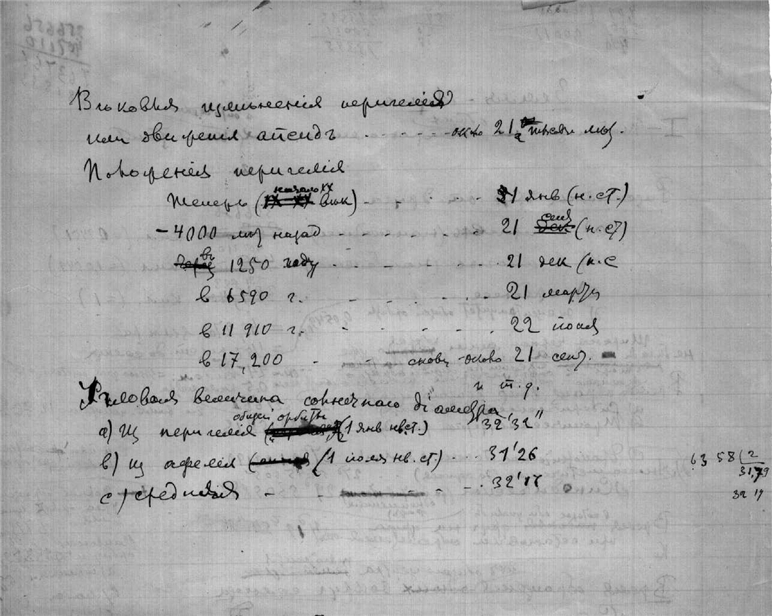 Вѣковыя измѣненія перигелія
или движенія апсидъ около 21 тысяч лѣт.
Положенія перигелія
Теперь (начало XX вѣк) 1 янв (н. ст.)
-4000 лѣт назад 21 сент (н. ст)
в 1250 году 21 дек (н. с
в 6590 г. 21 марта
в 11 910 г. 22 іюня
в 17,200 снова около 21 сент.
и т. д.
Угловая величина солнечнаго діаметра
а) Из перигелія общей орбиты (1 янв н.ст.) 32'32"
в) из афелія (1 іюля нв. ст) 31'26
с) средняя 32'
63 58 2
32